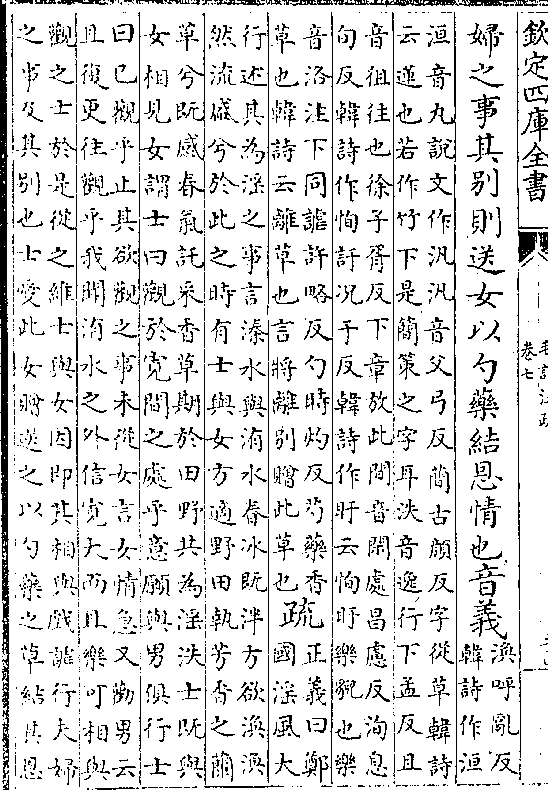 欽定四庫全書
毛詩注疏
卷七
婦之事其别則送女以勺藥結恩情也音義渙呼亂反
韓詩作洹
洹音丸說文作汎汎音父弓反蕑古顔反字從草韓詩
云蓮也若作竹下是簡策之字耳泆音逸行下孟反且
音徂往也徐子胥反下章放此閒音閑處昌慮反洵息
句反韓詩作恂訏况于反韓詩作盱云恂盱樂貌也樂
音洛注下同謔許略反勺時灼反芍藥香
草也韓詩云離草也言將離别贈此草也
疏正義曰鄭
國淫風大
行述其為淫之事言溱水與洧水春冰既泮方欲渙渙
然流盛兮於此之時有士與女方適野田執芳香之蘭
草兮既感春氣託采香草期於田野共為淫泆士既與
女相見女謂士曰觀於寛閒之處乎意願與男俱行士
曰已觀乎止其欲觀之事未從女言女情急又勸男云
且復更往觀乎我聞洧水之外信寛大而且樂可相與
觀之士於是從之維士與女因即其相與戲謔行夫婦
之事及其别也士愛此女贈送之以勺藥之草結其恩